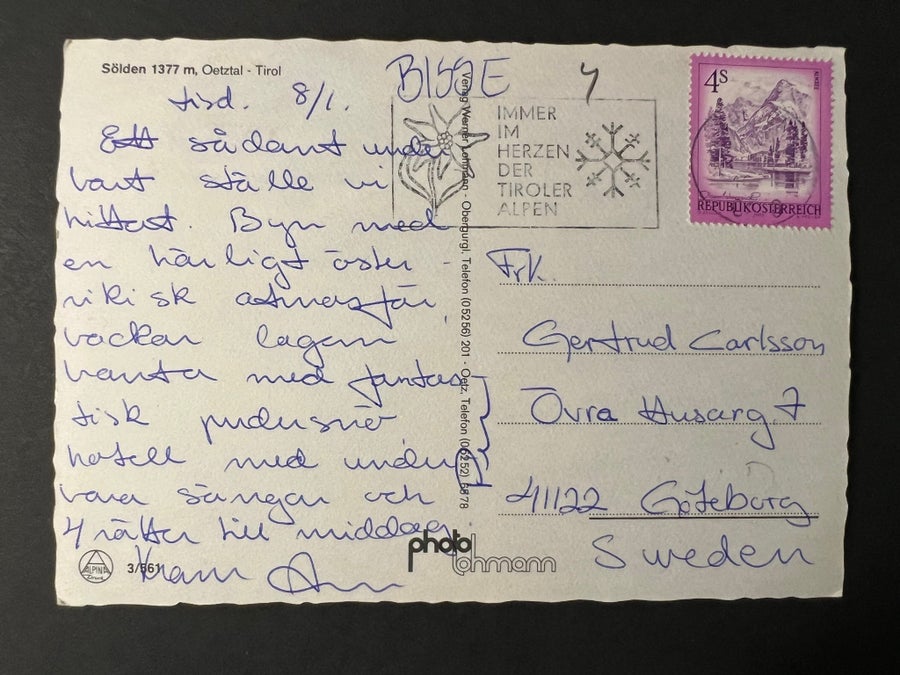 Sölden 1377 m, Oetztal - Tirol
tisd. 8/1.
Ett sådant under
bart ställe vi
hittat. Byn med
en härligt öster-
rikisk atmosfär
vackar lagom
branta med fantas-
tisk pudersnö
hotell med under
bara sängar och
4 rätter till middag.
Kram
ALPINA
3/561
BISSE
4
IMMER
IM
HERZEN
DER
TIROLER
ALPEN
4S
REPUBLIK ÖSTERREICH
Verlag Werner Lohmann · Obergurgl, Telefon (05256) 201 · Oetz, Telefon (05252) 6878
photo
lohmann
Frk.
Gertrud Carlsson
Övra Husarg 7
41122 Göteborg
Sweden